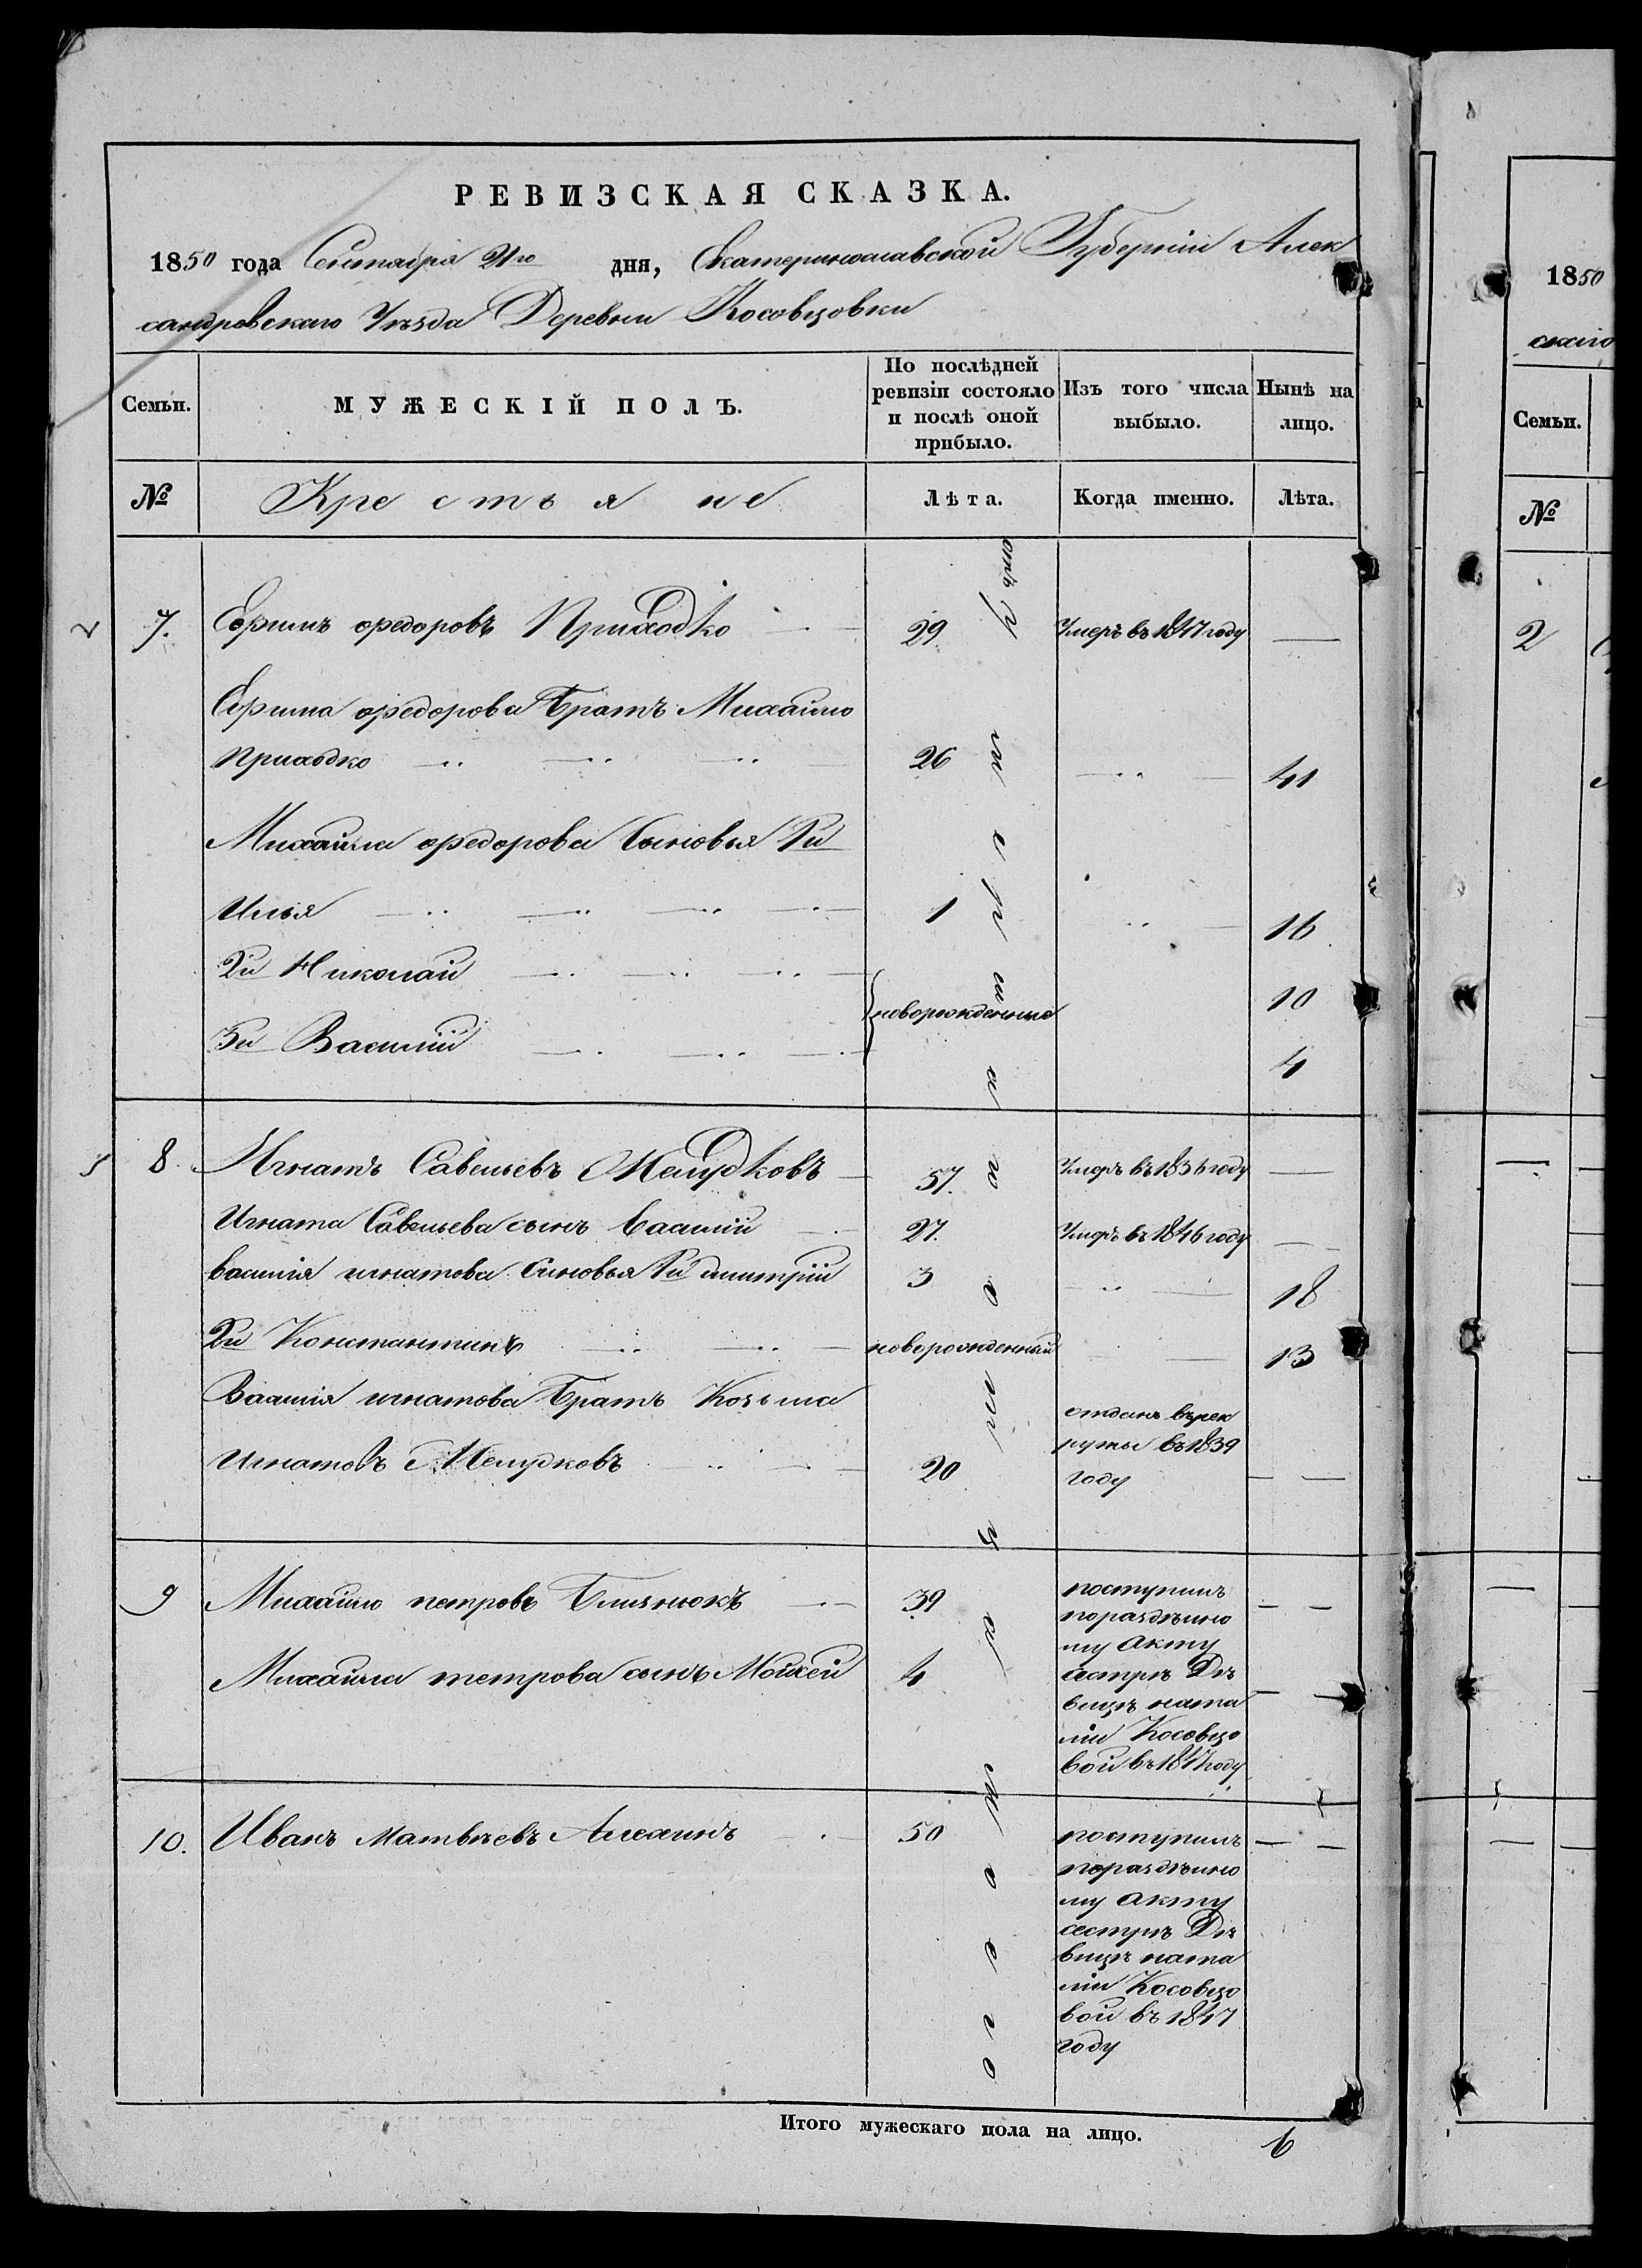 РЕВИЗСКАЯ СКАЗКА.
1850 года Сентября 2го дня, Екатеринославской Губернии Алек
сандровскаго Уѣзда Деревни Косовцовки
Семьи. МУЖЕСКІЙ ПОЛЪ. По послѣдней ревизіи состояло и послѣ оной прибыло. Изъ того числа выбыло. Нынѣ на лицо.
№ Крестьяне Лѣта. Когда именно. Лѣта.
7. Ефимъ Федоровъ Приходко 29. Умеръ въ 1847 году —
Ефима Федорова Братъ Михайло
Приходко 26 41
Михайла Федорова Сыновья 1й
Илья 1 16
2й Николай 10
новорожденные
3й Василій 4
8. Игнатъ Савельевъ Мелудковъ 57. Умеръ въ 1836 году —
Игната Савельева сынъ Василій 27. Умеръ въ 1846 году —
Василія игнатова Синовья 1й дмитрій 3 18
2й Константинъ новорожденный 13
Василія игнатова Братъ Козьма
Игнатовъ Мелудковъ 20 отданъ въ рек
руты въ 1839
году
9 Михайло петровъ Близнюкъ 39 поступилъ
пораздѣлно
му акту
сестрѣ Дѣ
вицѣ ната
ліи Косовцо
вой въ 1847 году
Михайла петрова сынъ Мойсей 4
10. Иванъ Матвѣевъ Алехинъ 50 поступилъ
пораздѣлно
му акту
сестрѣ Дѣ
вицѣ ната
ліи Косовцо
вой въ 1847
году
Итого мужескаго пола на лицо. 6
1850
скаго
Семьи.
№
2